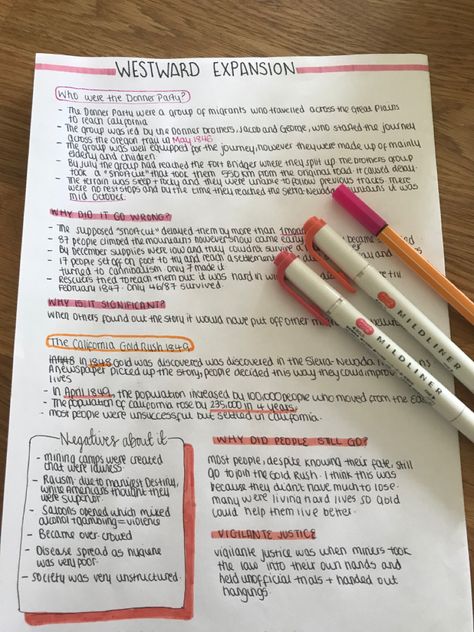 WESTWARD EXPANSION
WHO were the Donner Party?
- The Donner Party were a group of migrants who travelled across the Great Plains
to reach California
- The group was led by the Donner brothers, Jacob and George, who started the journey
across the Oregon trail in May 1846
- The group was well equipped for the journey, however they were made up of mainly
elderly and children
- By July the group had reached the Fort Bridger where they split up the brothers group
took a "shortcut" that took them 550km from the original road. It caused delay.
- The terrain was steep + rocky and they were unable to follow previous tracks. There
were no rest stops and by the time they reached the Sierra Nevada mountains it was
mid October.
WHY DID IT GO WRONG?
- The supposed "shortcut" delayed them by more than 1 month
- 87 people climbed the mountains however snow came early
- By december supplies were low and they couldn't survive a
- 17 people set off on foot to try and reach a settlement
turned to cannibalism only 7 made it
- Rescuers tried to reach them but it was hard in
February 1847. Only 46/87 survived.
WHY IS IT SIGNIFICANT?
When others found out the story it would have put off other
The California Gold Rush 1849
- In 1848 Gold was discovered was discovered in the Sierra Nevada
A newspaper picked up the story, people decided this way they could improve
lives
- In April 1849, the population increased by 100,000 people who moved from the
- The population of California rose by 235,000 in 4 years.
- most people were unsuccessful but settled in California.
Negatives about it
- mining camps were created
that were lawless
- Racism due to manifest Destiny,
white Americans thought they
were superior
- Saloons opened which mixed
alcohol + gambling = violence
- Became over crowded
- Disease spread as hygiene
was very poor.
- Society was very unstructured.
WHY DID PEOPLE STILL GO?
most people, despite knowing their fate, still
go to join the Gold Rush. I think this was
because they didn't have much to lose.
many were living hard lives so Gold
could help them live better.
VIGILANTE JUSTICE
vigilante justice was when miners took
the law into their own hands and
held unofficial trials + handed out
hangings.
MILDLINER
MILDLINER